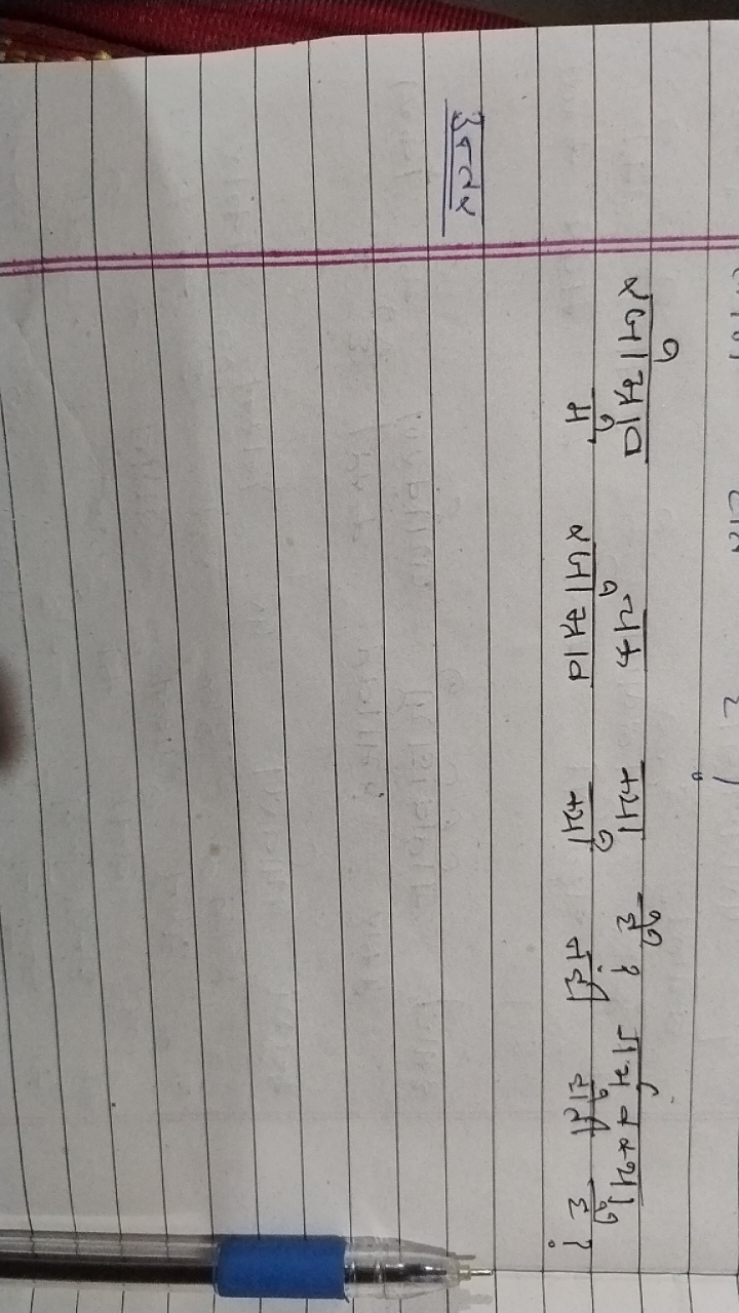 रजोस्राव चक्र क्या है? गर्भावस्था
में रजोस्राव क्यों नहीं होती है?
उत्तर